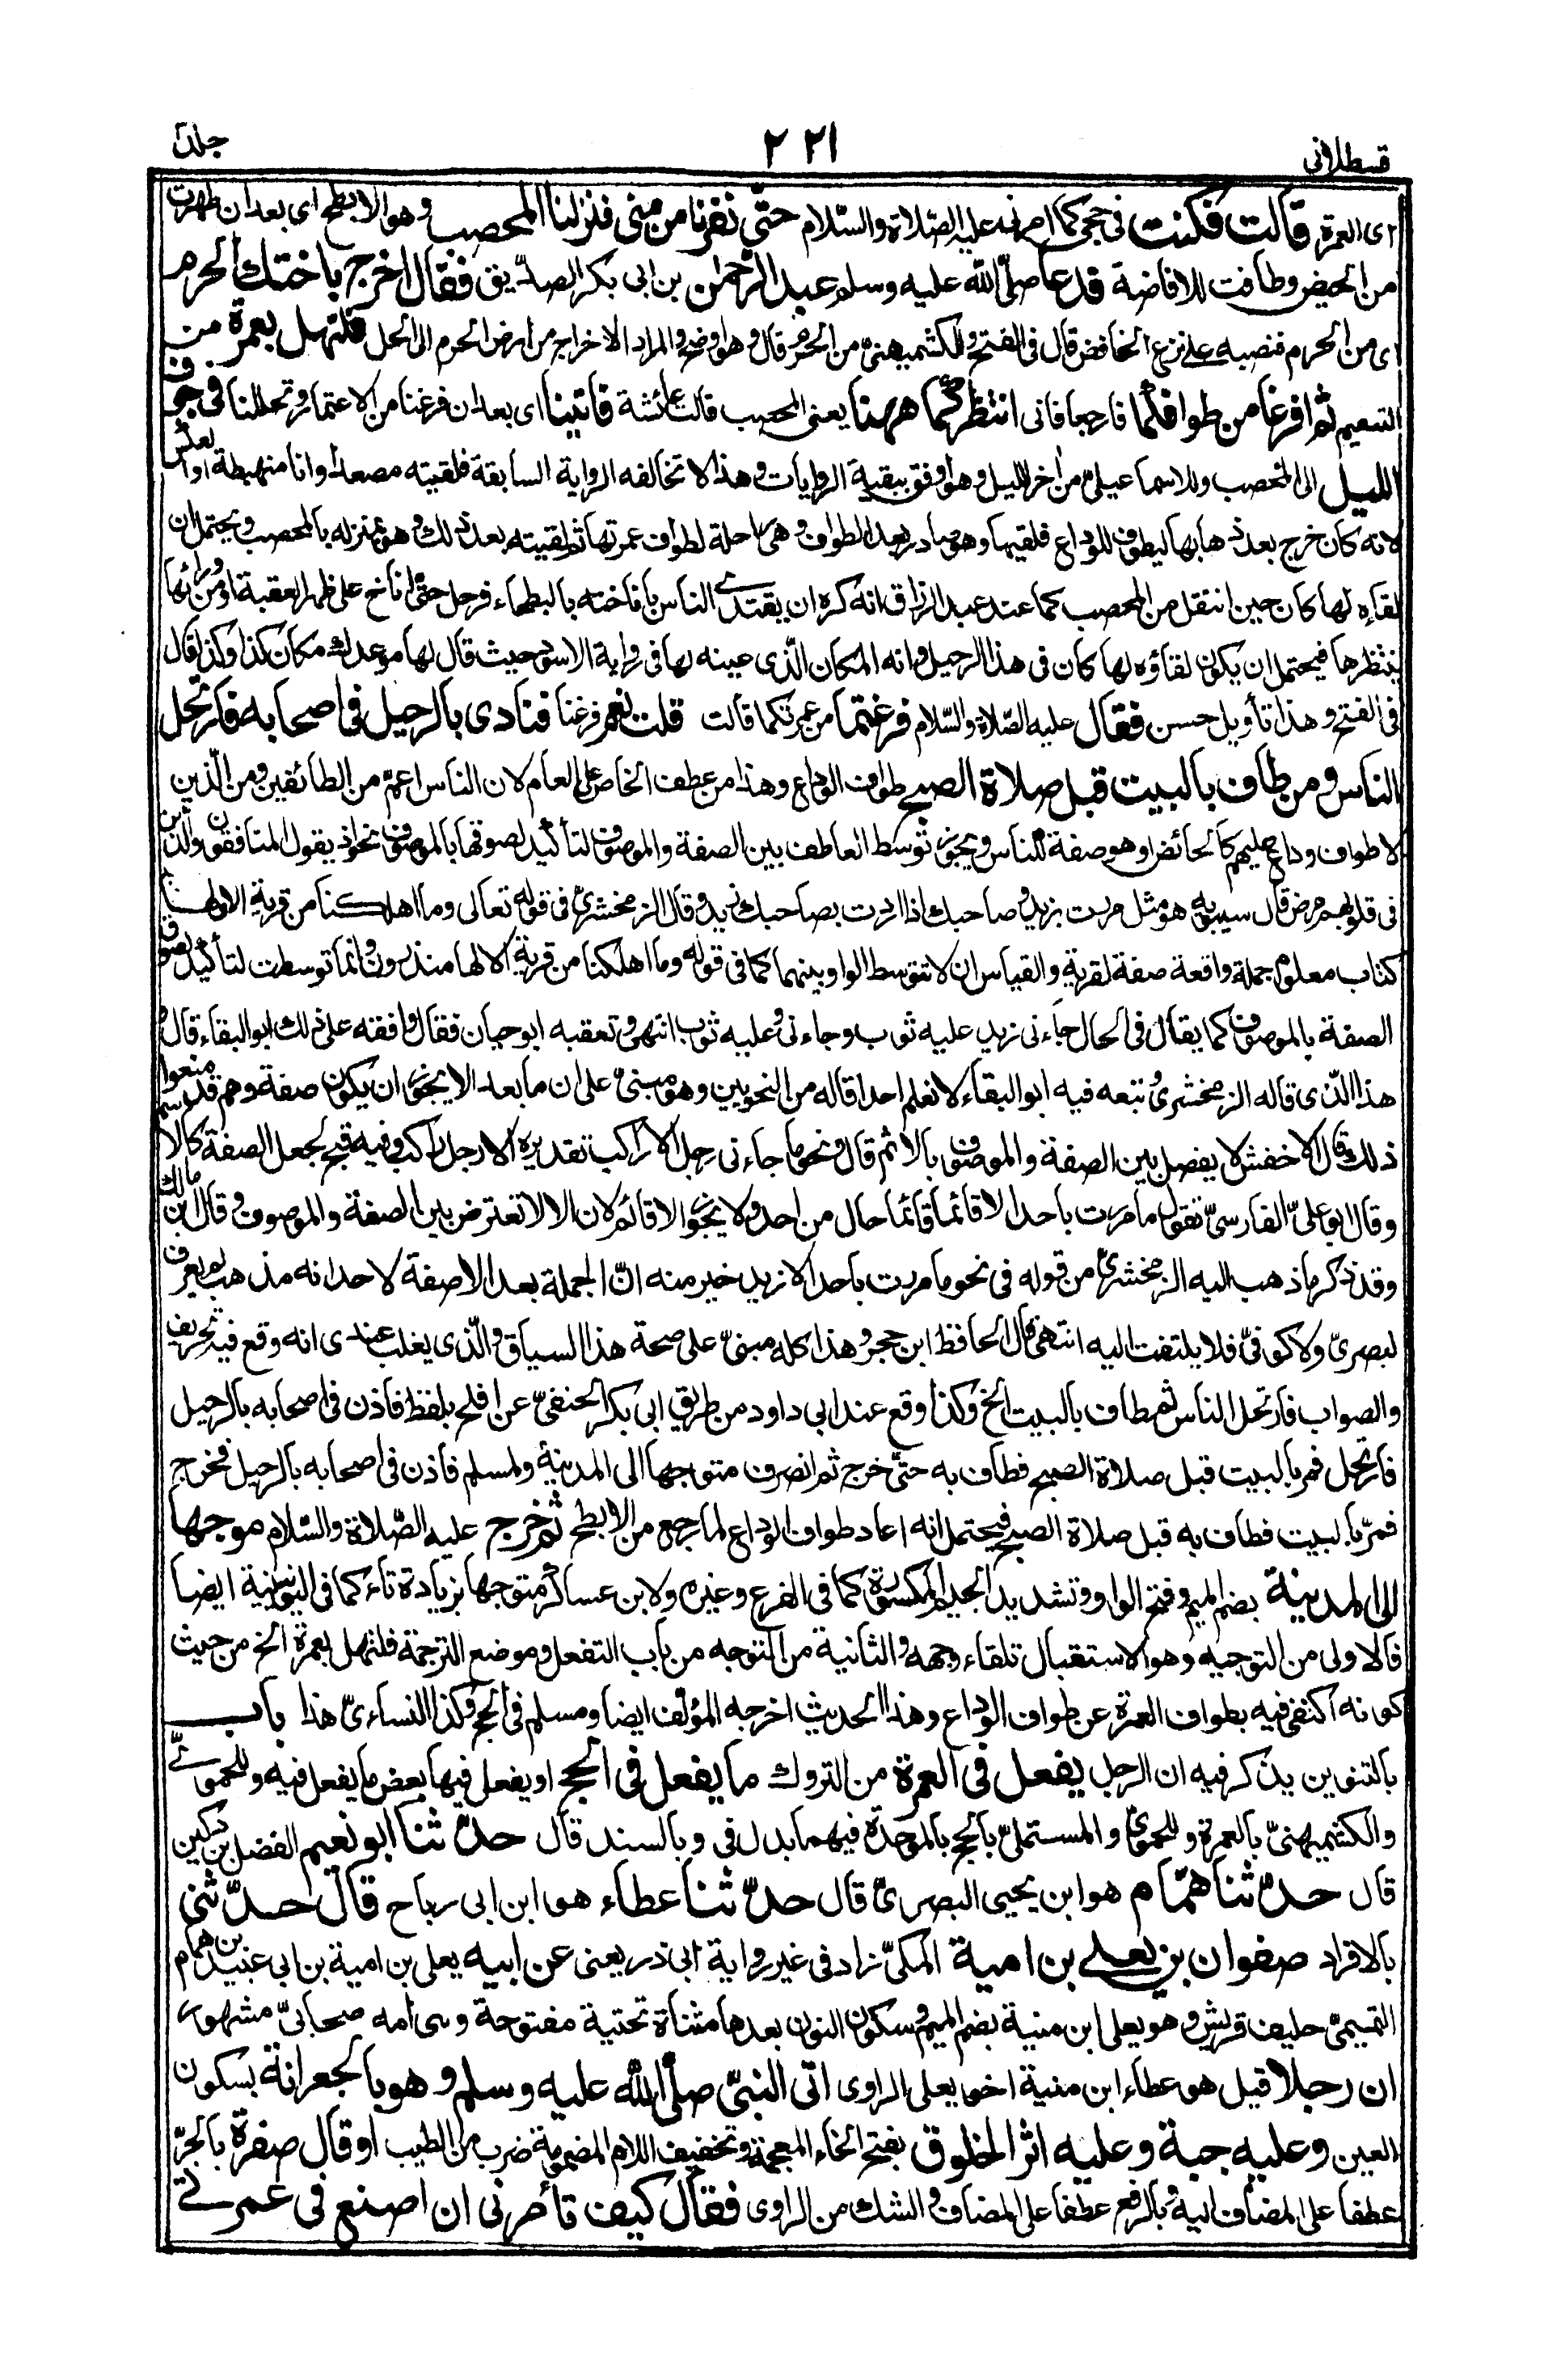 قسطلاني ٢٢١ جلد
اى العمرة قالت فكنت فى حجى كما امرنى عليه الصّلاة والسّلام حتّى نفرنا من منى فنزلنا المحصب وهو الابطح اى بعد ان طهرت
من الحيض وطافت للافاضة فدعا صلّى الله عليه وسلم عبد الرّحمن بن ابى بكر الصدّيق فقال اخرج باختك الحرم
اى من الحرم فنصبه على نزع الخافض قال فى الفتح وللكشميهنىّ من الحرم قال وهو اوضح والمراد الاخراج من ارض الحرم الى الحل فلتهل بعمرة من
التنعيم ثم افرغا من طوافكما فارجعا فانى انتظركما ههنا يعنى المحصب قالت عائشة فاتينا اى بعد ان فرغنا من الاعتمار وتحللنا فى جوف
الليل الى المحصب وللاسماعيلىّ من اخر الليل وهو اوفق ببقية الروايات وهذا لا تخالفه الرواية السابقة فلقيته مصعدا وانا منهبطة او بالعكس
لانه كان خرج بعد ذهابها ليطوف للوداع فلقيها وهو صادر بعد الطواف وهى راحلة لطواف عمرتها ثم لقيته بعد ذلك وهو بمنزله بالمحصب ويحتمل ان
لقاءه لها كان حين انتقل من المحصب كما عند عبد الرزاق انه كره ان يقتدى الناس باناخته بالبطحاء فرحل حتّى اناخ على ظهر العقبة او من ورائها
ينتظرها فيحتمل ان يكون لقاؤه لها كان فى هذا الرحيل وانه المكان الّذى عينه لها فى رواية الاسود حيث قال لها موعدك مكان كذا وكذا قال
فى الفتح وهذا تأويل حسن فقال عليه الصّلاة والسّلام فرغتما من عمرتكما قالت قلت نعم فرغنا فنادى بالرحيل فى اصحابه فارتحل
الناس ومن طاف بالبيت قبل صلاة الصبح طواف الوداع وهذا من عطف الخاص على العام لان الناس اعمّ من الطائفين ومن الّذين
لا طواف وداع عليهم كالحائض او هو صفة للناس ويجوز توسط العاطف بين الصفة والموصوف لتأكيد لصوقها بالموصوف نحو اذ يقول المنافقون والّذين
فى قلوبهم مرض قال سيبويه هو مثل مررت بزيد وصاحبك اذا اردت بصاحبك زيد وقال الزمخشرىّ فى قوله تعالى وما اهلكنا من قرية الا ولها
كتاب معلوم جملة واقعة صفة لقرية والقياس ان لا تتوسط الواو بينهما كما فى قوله وما اهلكنا من قرية الا لها منذرون وانما توسطت لتأكيد لصوق
الصفة بالموصوف كما يقال فى الحال جاءنى زيد عليه ثوب وجاءنى وعليه ثوب انتهى وتعقبه ابو حيان فقال وافقه على ذلك ابو البقاء قال و
هذا الّذى قاله الزمخشرىّ وتبعه فيه ابو البقاء لا نعلم احدا قاله من النحويين وهو مبنىّ على ان ما بعد الا يجوز ان يكون صفة وهم قد منعوا
ذلك قال الاخفش لا يفصل بين الصفة والموصوف بالا ثم قال ونحو ما جاءنى رجل الا راكب تقديره الا رجل راكب وفيه قبح لجعل الصفة كالاسم
وقال ابو علىّ الفارسىّ تقول ما مررت باحد الا قائما قائما حال من احد ولا يجوز الا قائم لان الا لا تعترض بين الصفة والموصوف وقال ابن مالك
وقد ذكر ما ذهب اليه الزمخشرىّ من قوله فى نحو ما مررت باحد الا زيد خير منه انّ الجملة بعد الا صفة لاحد انه مذهب لم يعرف
لبصرىّ ولا كوفىّ فلا يلتفت اليه انتهى قال الحافظ ابن حجر وهذا كله مبنىّ على صحة هذا السياق والّذى يغلب عندى انه وقع فيه تحريف
والصواب فارتحل الناس ثم طاف بالبيت الخ وكذا وقع عند ابى داود من طريق ابى بكر الحنفىّ عن افلح بلفظ فاذن فى اصحابه بالرحيل
فارتحل فمر بالبيت قبل صلاة الصبح فطاف به حتّى خرج ثم انصرف متوجها الى المدينة ولمسلم فاذن فى اصحابه بالرحيل فخرج
فمرّ بالبيت فطاف به قبل صلاة الصبح فيحتمل انه اعاد طواف الوداع لما رجع من الابطح ثم خرج عليه الصّلاة والسّلام موجها
الى المدينة بضم الميم وفتح الواو وتشديد الجيم المكسورة كما فى الفرع وغيره ولابن عساكر متوجها بزيادة تاء كما فى اليونينية ايضا
فالاولى من التوجيه وهو الاستقبال تلقاء وجهه والثانية من التوجه من باب التفعل وموضع الترجمة فلتهل بعمرة الخ من حيث
كونه اكتفى فيه بطواف العمرة عن طواف الوداع وهذا الحديث اخرجه المؤلف ايضا ومسلم فى الحج وكذا النساءىّ هذا باب
بالتنوين يذكر فيه ان الرجل يفعل فى العمرة من التروك ما يفعل فى الحج او يفعل فيها بعض ما يفعل فيه وللحموىّ
والكشميهنىّ بالعمرة وللحموىّ والمستملىّ بالحج بالموحدة فيهما بدل فى وبالسند قال حدّثنا ابو نعيم الفضل بن دكين
قال حدّثنا همّام هو ابن يحيى البصرىّ قال حدّثنا عطاء هو ابن ابى رباح قال حدّثنى
بالافراد صفوان بن يعلى بن امية المكىّ زاد فى غير رواية ابى ذر يعنى عن ابيه يعلى بن امية بن ابى عبيد بن همام
التميمىّ حليف قريش وهو يعلى ابن منية بضم الميم وسكون النون بعدها مثناة تحتية مفتوحة وهى امه صحابىّ مشهور
ان رجلا قيل هو عطاء ابن منية اخو يعلى الراوى اتى النبىّ صلّى الله عليه وسلم وهو بالجعرانة بسكون
العين وعليه جبة وعليه اثر الخلوق بفتح الخاء المعجمة وتخفيف اللام المضمومة ضرب من الطيب او قال صفرة بالجرّ
عطفا على المضاف اليه وبالرفع عطفا على المضاف والشك من الراوى فقال كيف تأمرنى ان اصنع فى عمرتى